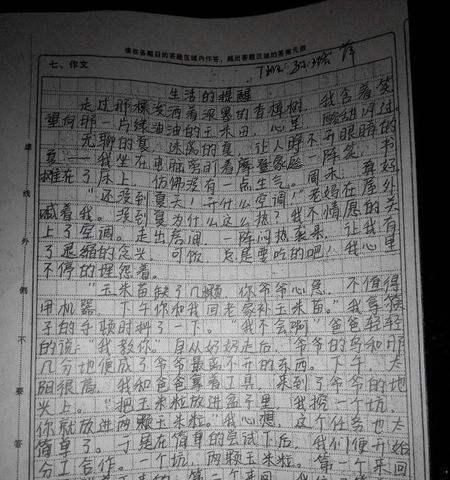 请在各题目的答题区域内作答，超出答题区域的答案无效
七、作文
生活的提醒
走过那棵发洒着浓墨的香樟树，我含着笑
望向那一片绿油油的玉米田，心里
无聊的夏，迷蒙的夏，让人睁不开眼睛的
夏……我坐在电脑旁盯着 家庭一阵笑，书
摊在了床上，仿佛没有一点生气。周末，真好，
“还没到夏天！开什么空调！”老妈在屋外
喊着我。没到夏为什么这么热？我不情愿的关
上了空调。走出房间，一阵闷热袭来，让我有
了退缩的念头，可饭，总是要吃的吧！我心里
不停的埋怨着。
“玉米苗缺了几颗，你爷爷心急，不值得
用机器，下午你和我回老家补玉米苗。”我拿筷
子的手顿时抖了一下。“我不会啊”爸爸轻轻
的说：“我教你”自从奶奶走后，爷爷的鸟和那
几分地便成了爷爷最离不开的东西。下午，太
阳很高，我和爸爸拿着工具，来到了爷爷的地
头上。“把玉米粒放进盆子里，我挖一个坑，
你就放进两颗玉米粒。”我心想，这个任务也太
简单了。于是在简单的尝试下后，我们便开始
分工合作。一个坑，两颗玉米粒。第一个来回
虚
线
外
侧
不
要
答